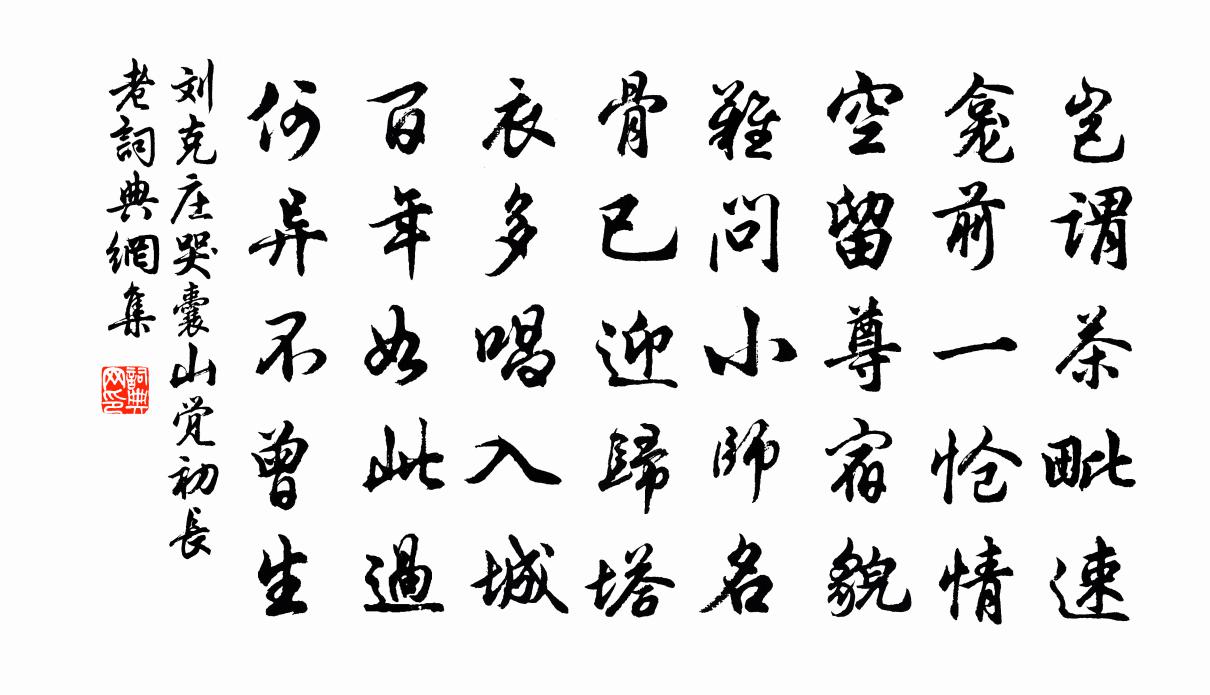 岂谓茶毗速
龛前一怆情
空留尊宿貌
难问小师名
骨已迎归塔
衣多唱入城
百年如此过
何异不曾生
刘克庄哭囊山觉初长
老詞典網集
詞典
网印